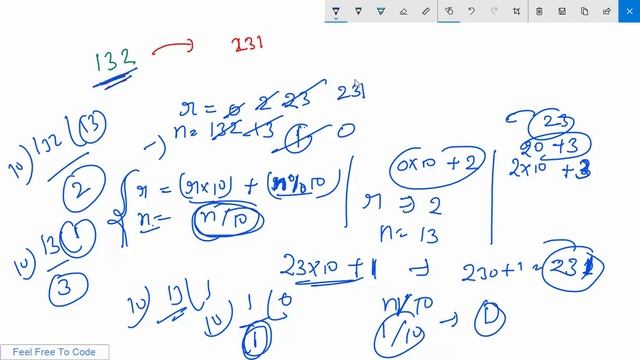 132 → 231
r = 0 2 23 231
→) n = 132 13 1 0
10) 132 (13
2
r = (r×10) + (n%10)
n = (n/10)
0×10 + 2
r ⇒ 2
n = 13
23
20 + 3
2×10 + 3
10) 13 (1
3
23×10 + 1 ⇒ 230 + 1 = 231
10) 13 (1
10) 1 (0
1
n/10
1/10 → 0
Feel Free To Code